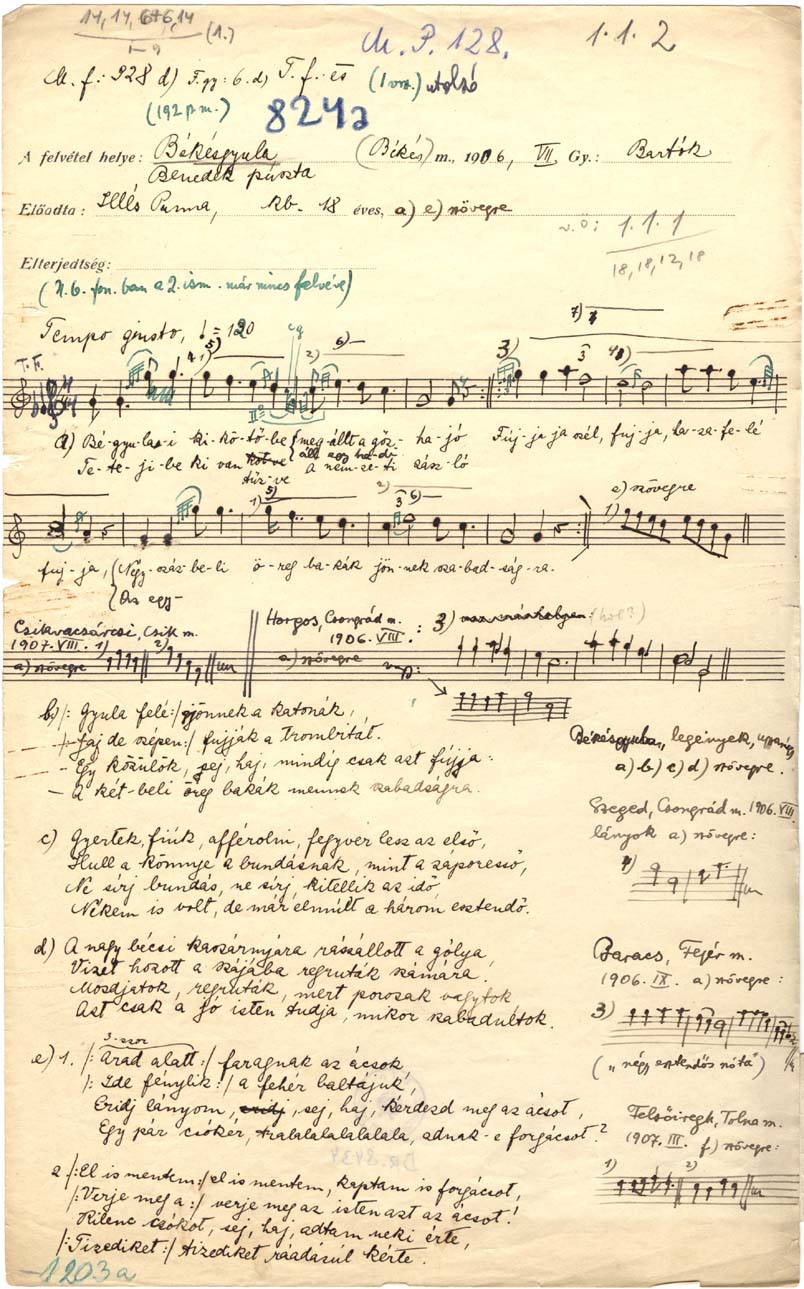 14, 14, 6+6, 14 (1.)
M. P. 128.
1.1.2
M. f.: 928 d) T. gy.: 6. d) T. f. és (1 vsz.) utolsó
(192 p m.)
824a
A felvétel helye: Békésgyula (Békés) m., 1906, VII. Gy.: Bartók
Benedek puszta
Előadta: Illés Panna, kb. 18 éves, a) e) szövegre
v.ö: 1.1.1
18, 18, 12, 18
Elterjedtség:
(N.b. fon. ban a 2. ism. már nincs felvéve)
Tempo giusto, ♩= 120
T. F.
a) Bé-gyula-i ki-kö-tő-be meg-állt a gőz-ha-jó Fúj-ja ja szél, fuj-ja, ha-za-fe-lé
áll egy ha-di
Te-te-ji-be ki van tűz-ve a nem-ze-ti zász-ló
e) szövegre
fuj-ja, Négy-száz-be-li ö-reg ba-kák jön-nek sza-bad-ság-ra.
Az egy-
Csikvacsárcsi, Csik m.
1907. VIII. 1) 2)
a) szövegre
Horgos, Csongrád m.
1906. VIII. :
a) szövegre
3)
vagy:
b.) /: Gyula felé :/ jönnek a katonák,
Jaj de szépen :/ fujják a trombitát.
- Egy közülök, sej, haj, mindig csak azt fújja:
- A két-beli öreg bakák mennek szabadságra.
Békésgyula, legények,
a) b) c) d) szövegre.
Szeged, Csongrád m. 1906. VIII.
lányok a) szövegre:
c) Gyertek, fiúk, afférolni, fegyver lesz az első,
Hull a könnye a bundásnak, mint a záporeső,
Ne sírj bundás, ne sírj, kitellik az idő
Nékem is volt, de már elmúlt a három esztendő.
d) A nagy bécsi kaszárnyára rászállott a gólya,
Vizet hozott a szájába regruták számára.
Mosdjatok, regruták, mert porosak vagytok,
Azt csak a jó isten tudja, mikor szabadultok.
Baracs, Fejér m.
1906. IX. a) szövegre:
3)
("négy esztendős nóta")
3-szor
e) 1. /: Arad alatt :/ faragnak az ácsok,
/: Ide fénylik :/ a fehér baltájuk,
Eridj lányom, eridj, sej, haj, kérdezd meg az ácsot,
Egy pár csókér, tralalalalalala, adnak-e forgácsot?
Felsőiregh, Tolna m.
1907. III. f) szövegre:
1) 2)
2 /: El is mentem :/ el is mentem, kaptam is forgácsot,
/: Verje meg a :/ verje meg az isten azt az ácsot!
Kilenc csókot, sej, haj, adtam neki érte,
/: Tizediket :/ tizediket ráadásúl kérte.
1203a